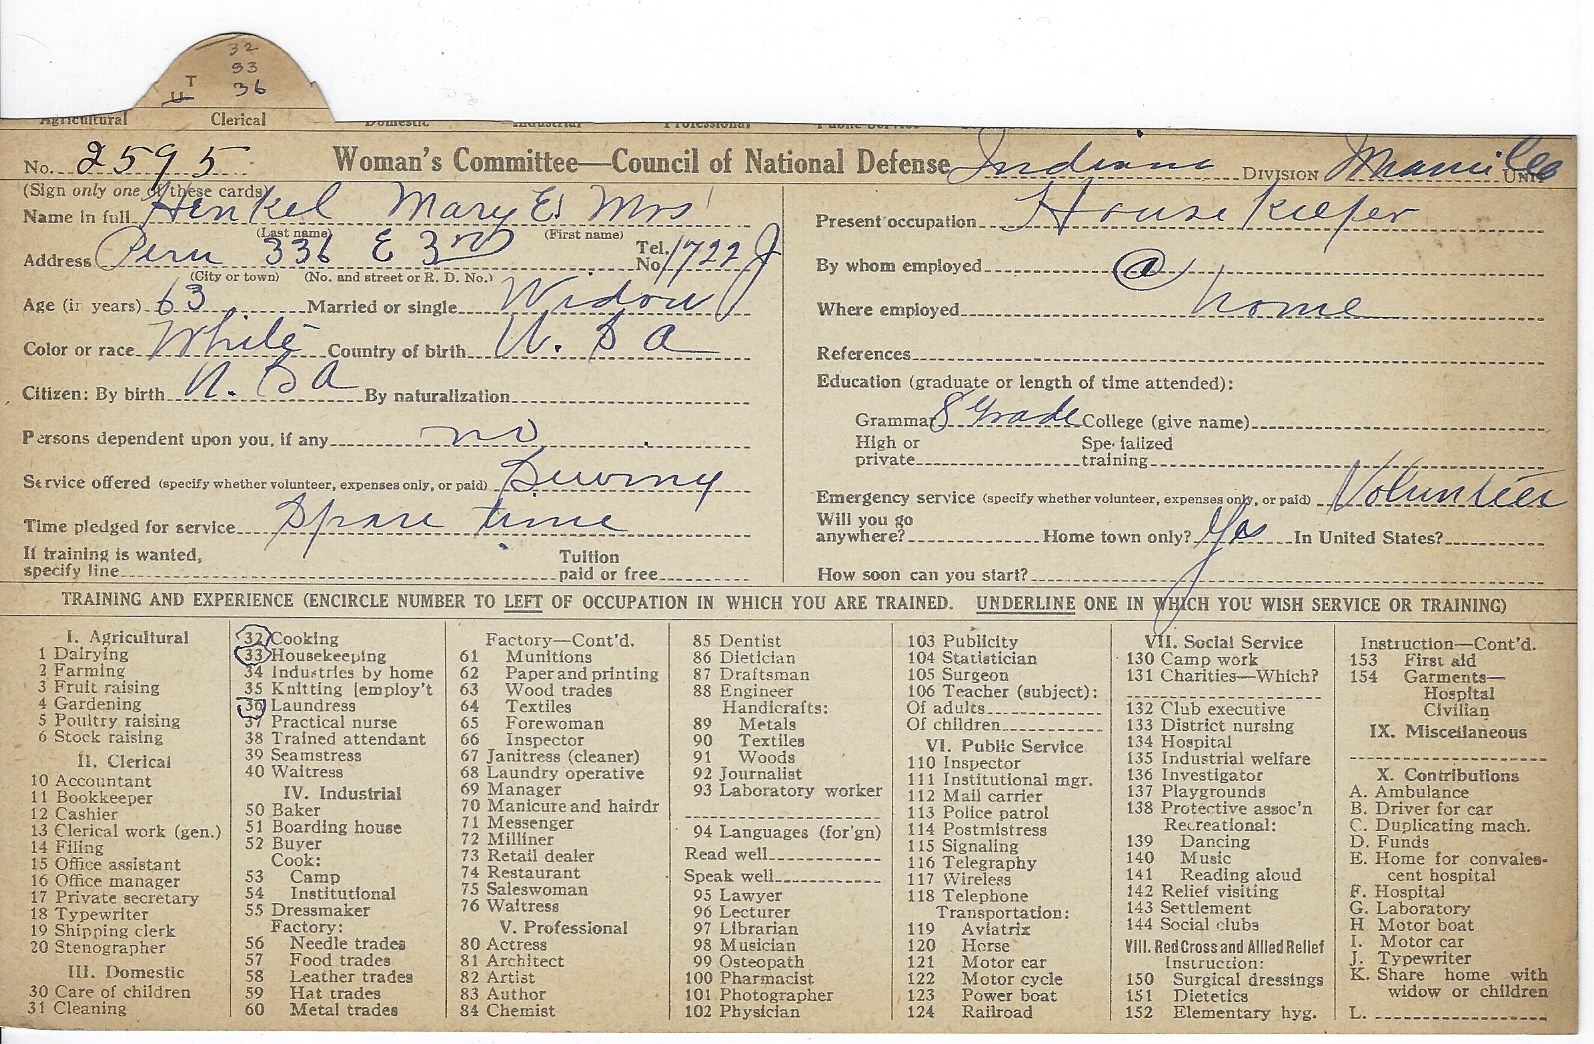 32
93
T 36
U
Agricultural Clerical Domestic Industrial Professional Public Service
No. 2595 Woman's Committee—Council of National Defense Indiana DIVISION Miami Co UNIT
(Sign only one of these cards)
Name in full Henkel Mary E. Mrs
(Last name) (First name)
Address Peru 336 E 3rd Tel. No. 1722 J
(City or town) (No. and street or R. D. No.)
Age (in years) 63 Married or single Widow
Color or race White Country of birth U. S A
Citizen: By birth U. S A By naturalization
Persons dependent upon you, if any no
Service offered (specify whether volunteer, expenses only, or paid) Sewing
Time pledged for service Spare time
If training is wanted, specify line Tuition paid or free
Present occupation House Keeper
By whom employed @
Where employed home
References
Education (graduate or length of time attended):
Grammar 8 Grade College (give name)
High or private Specialized training
Emergency service (specify whether volunteer, expenses only, or paid) Volunteer
Will you go anywhere? Home town only? Yes In United States?
How soon can you start?
TRAINING AND EXPERIENCE (ENCIRCLE NUMBER TO LEFT OF OCCUPATION IN WHICH YOU ARE TRAINED. UNDERLINE ONE IN WHICH YOU WISH SERVICE OR TRAINING)
I. Agricultural
1 Dairying
2 Farming
3 Fruit raising
4 Gardening
5 Poultry raising
6 Stock raising
II. Clerical
10 Accountant
11 Bookkeeper
12 Cashier
13 Clerical work (gen.)
14 Filing
15 Office assistant
16 Office manager
17 Private secretary
18 Typewriter
19 Shipping clerk
20 Stenographer
III. Domestic
30 Care of children
31 Cleaning
32 Cooking
33 Housekeeping
34 Industries by home
35 Knitting [employ't
36 Laundress
37 Practical nurse
38 Trained attendant
39 Seamstress
40 Waitress
IV. Industrial
50 Baker
51 Boarding house
52 Buyer
Cook:
53 Camp
54 Institutional
55 Dressmaker
Factory:
56 Needle trades
57 Food trades
58 Leather trades
59 Hat trades
60 Metal trades
Factory—Cont'd.
61 Munitions
62 Paper and printing
63 Wood trades
64 Textiles
65 Forewoman
66 Inspector
67 Janitress (cleaner)
68 Laundry operative
69 Manager
70 Manicure and hairdr
71 Messenger
72 Milliner
73 Retail dealer
74 Restaurant
75 Saleswoman
76 Waitress
V. Professional
80 Actress
81 Architect
82 Artist
83 Author
84 Chemist
85 Dentist
86 Dietician
87 Draftsman
88 Engineer
Handicrafts:
89 Metals
90 Textiles
91 Woods
92 Journalist
93 Laboratory worker
94 Languages (for'gn)
Read well
Speak well
95 Lawyer
96 Lecturer
97 Librarian
98 Musician
99 Osteopath
100 Pharmacist
101 Photographer
102 Physician
103 Publicity
104 Statistician
105 Surgeon
106 Teacher (subject):
Of adults
Of children
VI. Public Service
110 Inspector
111 Institutional mgr.
112 Mail carrier
113 Police patrol
114 Postmistress
115 Signaling
116 Telegraphy
117 Wireless
118 Telephone
Transportation:
119 Aviatrix
120 Horse
121 Motor car
122 Motor cycle
123 Power boat
124 Railroad
VII. Social Service
130 Camp work
131 Charities—Which?
132 Club executive
133 District nursing
134 Hospital
135 Industrial welfare
136 Investigator
137 Playgrounds
138 Protective assoc'n
Recreational:
139 Dancing
140 Music
141 Reading aloud
142 Relief visiting
143 Settlement
144 Social clubs
VIII. Red Cross and Allied Relief
Instruction:
150 Surgical dressings
151 Dietetics
152 Elementary hyg.
Instruction—Cont'd.
153 First aid
154 Garments—
Hospital
Civilian
IX. Miscellaneous
X. Contributions
A. Ambulance
B. Driver for car
C. Duplicating mach.
D. Funds
E. Home for convales-
cent hospital
F. Hospital
G. Laboratory
H Motor boat
I. Motor car
J. Typewriter
K. Share home with
widow or children
L.